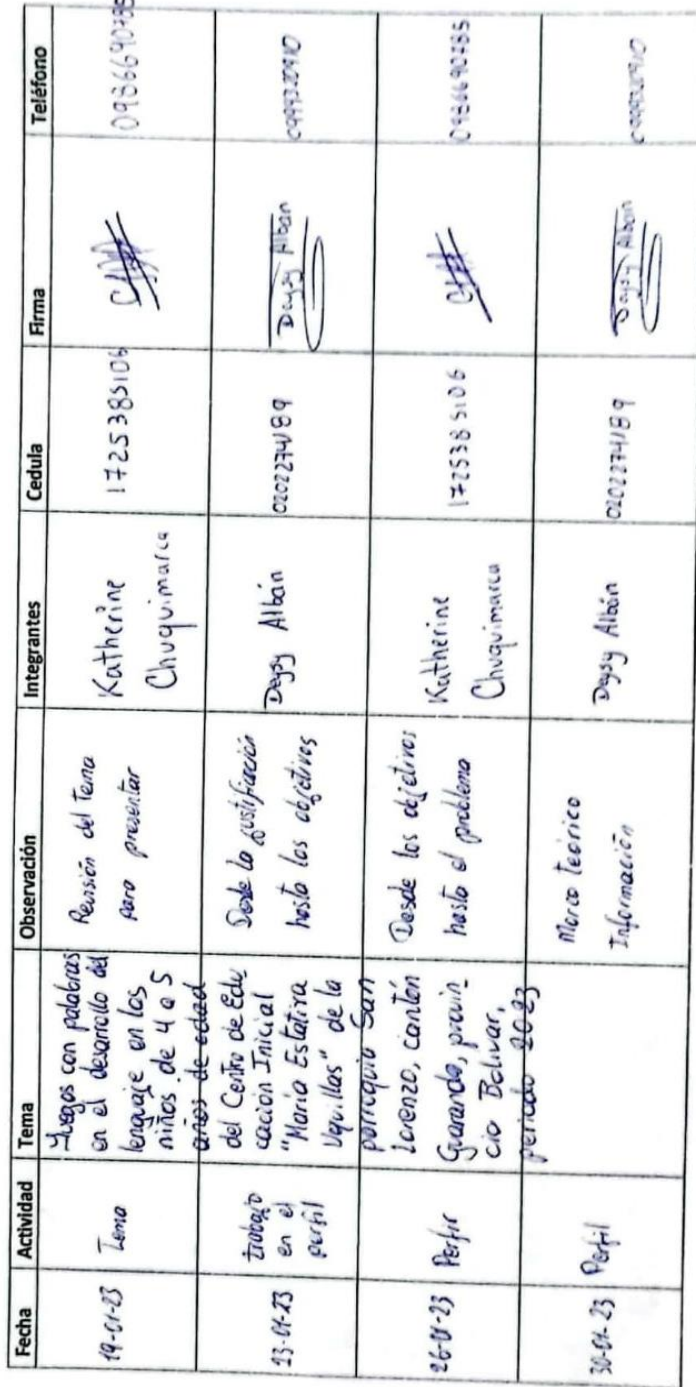 Fecha
Actividad
Tema
Observación
Integrantes
Cedula
Firma
Teléfono
19-01-23
Tema
Juegos con palabras
en el desarrollo del
lenguaje en los
niños de 4 a 5
años de edad
Revisión del Tema
para presentar
Katherine
Chuquimarca
1725385106
0986690785
23-01-23
trabajo
en el
perfil
del Centro de Edu
cación Inicial
"María Estativa
Uquillas" de la
Desde la justificación
hasta los objetivos
Deysy Albán
0202274189
Deysy Alban
26-01-23
Perfir
parroquia San
Lorenzo, cantón
Guaranda, provin
cia Bolívar,
periodo 2023
Desde los objetivos
hasta el problema
Katherine
Chuquimarca
1725385106
0986690785
30-01-23
Perfil
Marco teórico
Información
Deysy Albán
0202274189
Deysy Alban